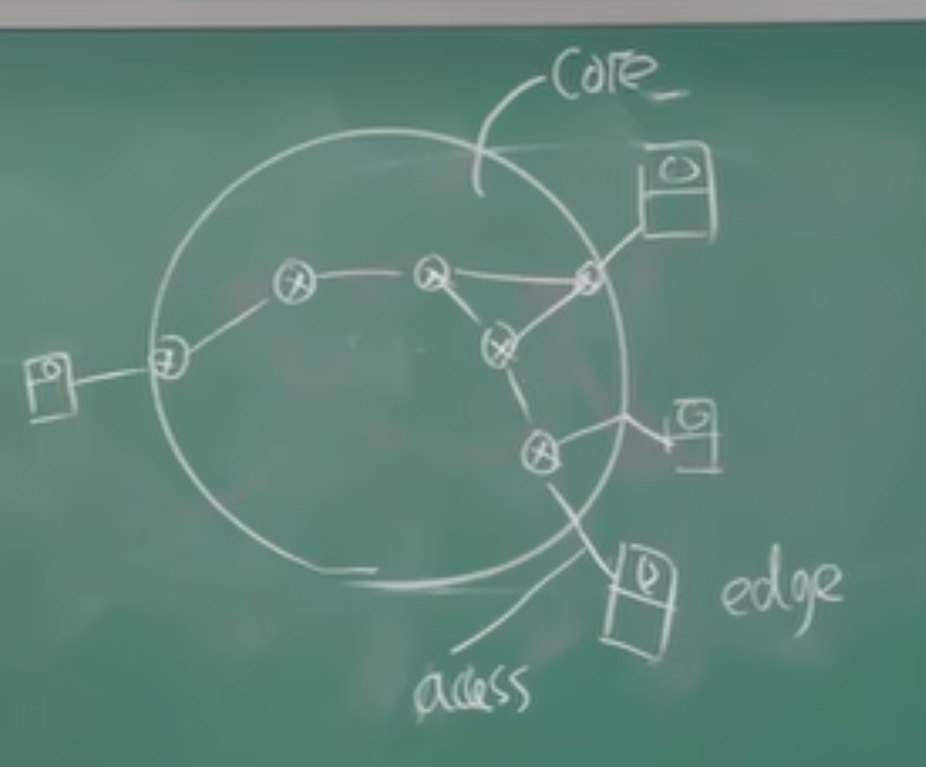 Core
edge
access